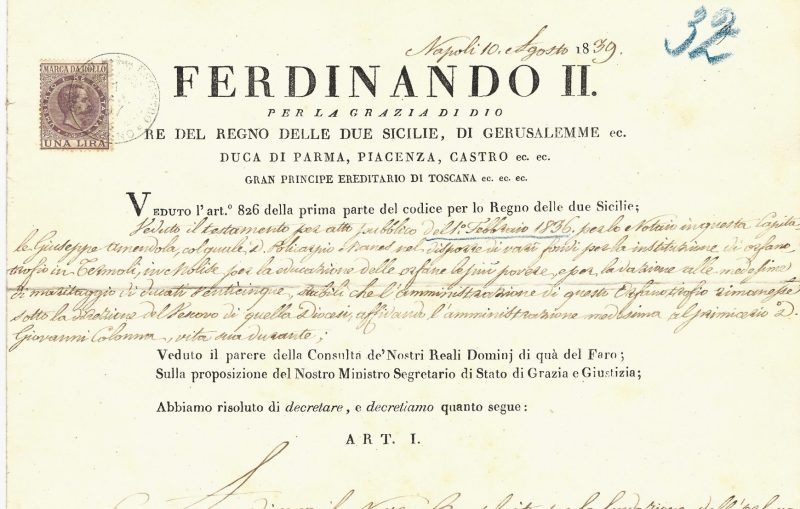 Napoli 10. Agosto 1839.
32
MARCA DA BOLLO
UNA LIRA
FERDINANDO II.
PER LA GRAZIA DI DIO
RE DEL REGNO DELLE DUE SICILIE, DI GERUSALEMME ec.
DUCA DI PARMA, PIACENZA, CASTRO ec. ec.
GRAN PRINCIPE EREDITARIO DI TOSCANA ec. ec. ec.
VEDUTO l'art.º 826 della prima parte del codice per lo Regno delle due Sicilie;
Veduto il testamento per atto pubblico del 1º Febbraio 1836. per lo Notaio in questa Capita-
le Giuseppe Amendola, col quale D. nel disporre di vari fondi per la instituzione di orfano-
trofio in Termoli, in Molise per la educazione delle orfane le più povere, e per la dazione alle medesime
di maritaggio di ducati venticinque, stabilì che l'amministrazione di questo Orfanotrofio rimanesse
sotto la direzione del Vescovo di quella Diocesi, affidando l'amministrazione medesima al primicerio D.
Giovanni Colonna, vita sua durante;
Veduto il parere della Consulta de'Nostri Reali Dominj di quà del Faro;
Sulla proposizione del Nostro Ministro Segretario di Stato di Grazia e Giustizia;
Abbiamo risoluto di decretare, e decretiamo quanto segue:
ART. I.